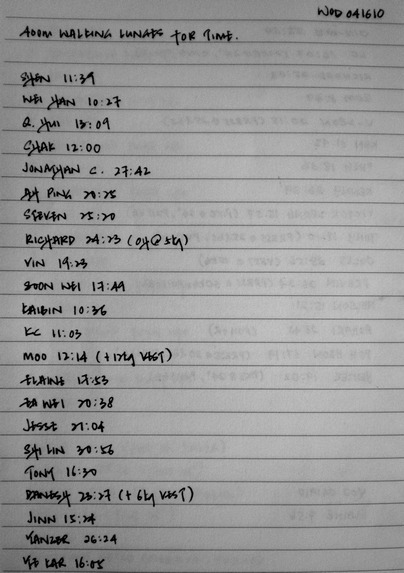 WOD 041610
400M WALKING LUNGES FOR TIME.
SHEN 11:39
WEI HAN 10:27
Q. HUI 13:09
SHAK 12:00
JONATHAN C. 27:42
AH PING 20:25
STEVEN 25:20
RICHARD 24:23 (OH @ 5kg)
VIN 19:23
SOON WEI 17:49
KAIBIN 10:36
KC 11:03
MOO 12:14 (+12kg VEST)
ELAINE 17:53
EA WEI 20:38
JESSE 21:04
SHI LIN 30:56
TONY 16:30
DANESH 23:27 (+6kg VEST)
JINN 15:24
YANZER 26:24
YIE KAR 16:05